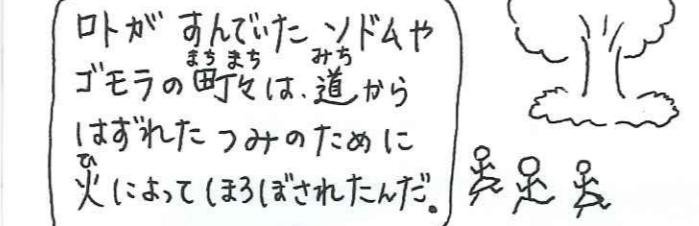 ロトが すんでいた ソドムや
ゴモラの町々は、道から
はずれた つみのために
火によって ほろぼされたんだ。